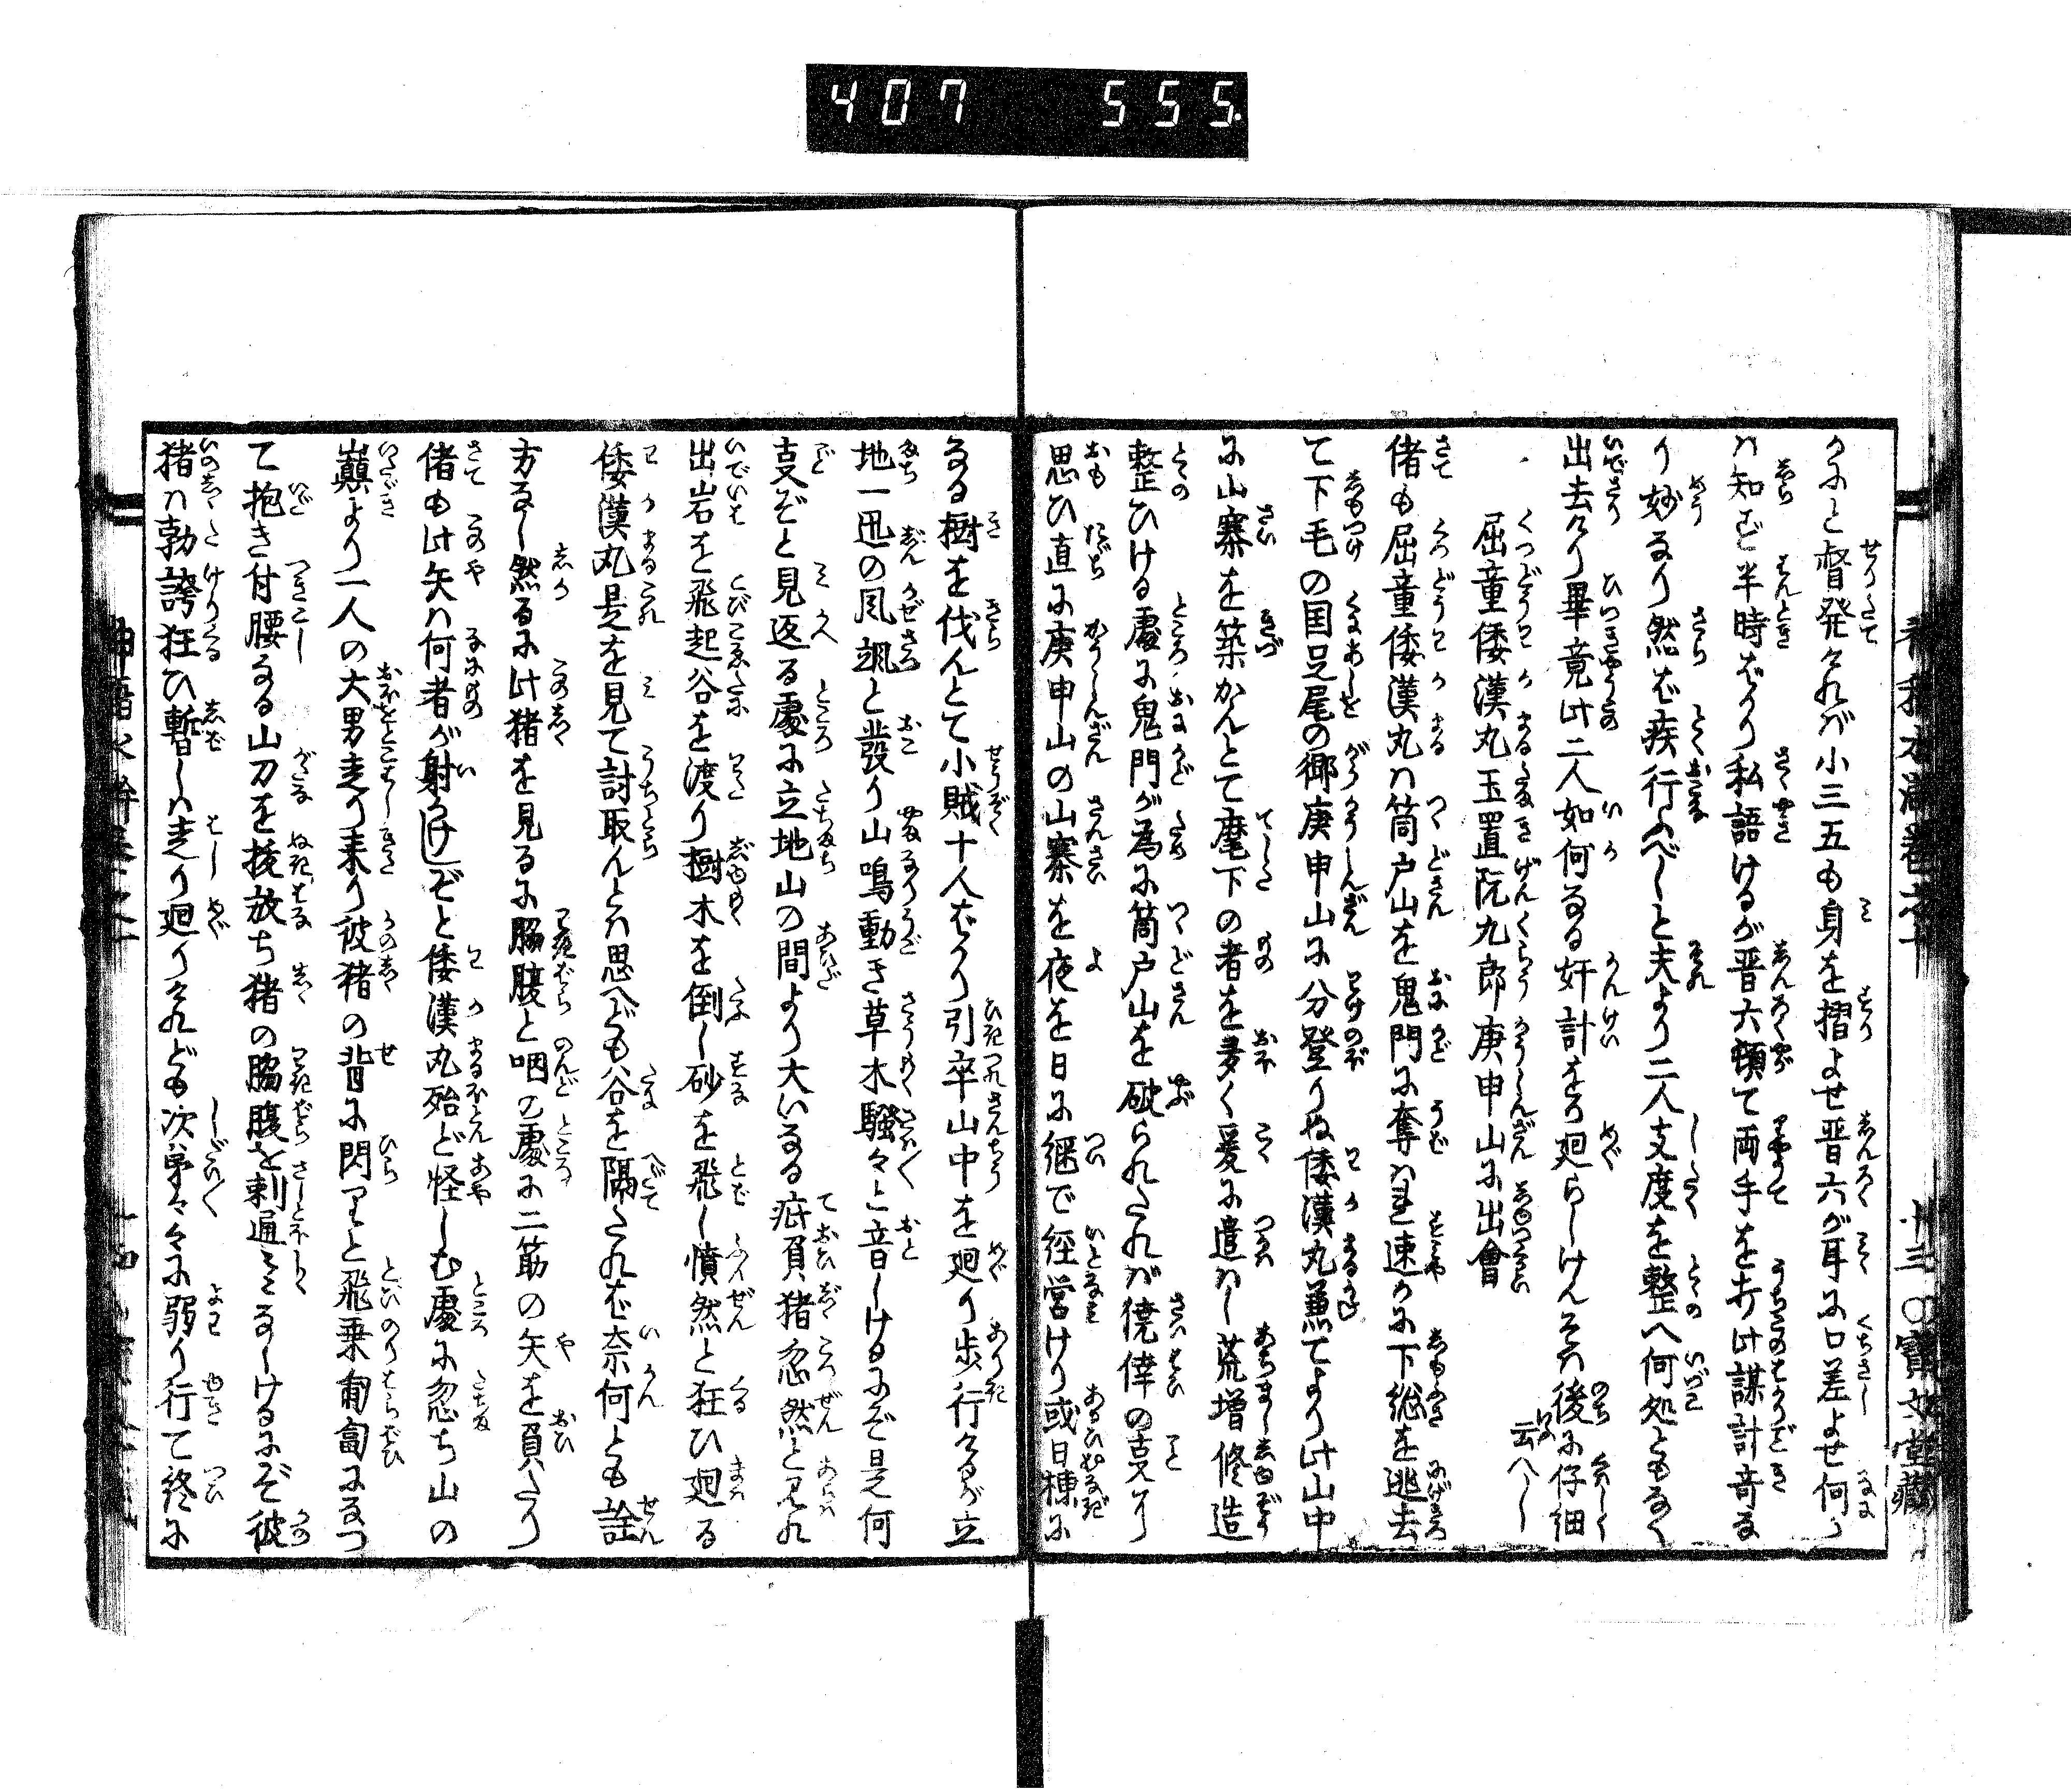 407 555
かふと督発けれバ小三五も身を摺よせ晋六が耳に口差よせ何か
ハ知ず半時ばかり私語けるが晋六頓て両手を打此謀計奇な
り妙なり然ば疾行べしと夫より二人支度を整へ何処ともなく
出去けり畢竟此二人如何なる奸計をか廻らしけんそハ後に仔細
云べし
屈童倭漢丸玉置阮九郎庚申山に出會
偖も屈童倭漢丸ハ筒戸山を鬼門に奪ハれ速かに下総を逃去
て下毛の国足尾の郷庚申山に分登りぬ倭漢丸兼てより此山中
に山寨を築かんとて麾下の者を多く爰に遣ハし荒増修造
整ひける處に鬼門が為に筒戸山を破られたれバ僥倖の叓なり
思ひ直に庚申山の山寨を夜を日に継で経営けり或日棟に
なる樹を伐んとて小賊十人ばかり引卒山中を廻り歩行けるが立
地一迅の風颯と發り山鳴動き草木騒々と音しけるにぞ是何
叓ぞと見返る處に立地山の間より大いなる疵負猪忽然と見れ
出岩を飛起谷を渡り樹木を倒し砂を飛し憤然と狂ひ廻る
倭漢丸是を見て討取んとハ思へども谷を隔たれば奈何とも詮
方なし然るに此猪を見るに脇腹と咽の處に二筋の矢を負たり
偖も此矢ハ何者が射けしぞと倭漢丸殆ど怪しむ處に忽ち山の
巓より一人の大男走り来り彼猪の背に閃りと飛乗匍匐になつ
て抱き付腰なる山刀を抜放ち猪の脇腹を刺通しけるにぞ彼
猪ハ勃誇狂ひ暫しハ走り廻りけれども次第々々に弱り行て終に
十三〇寶文堂藏